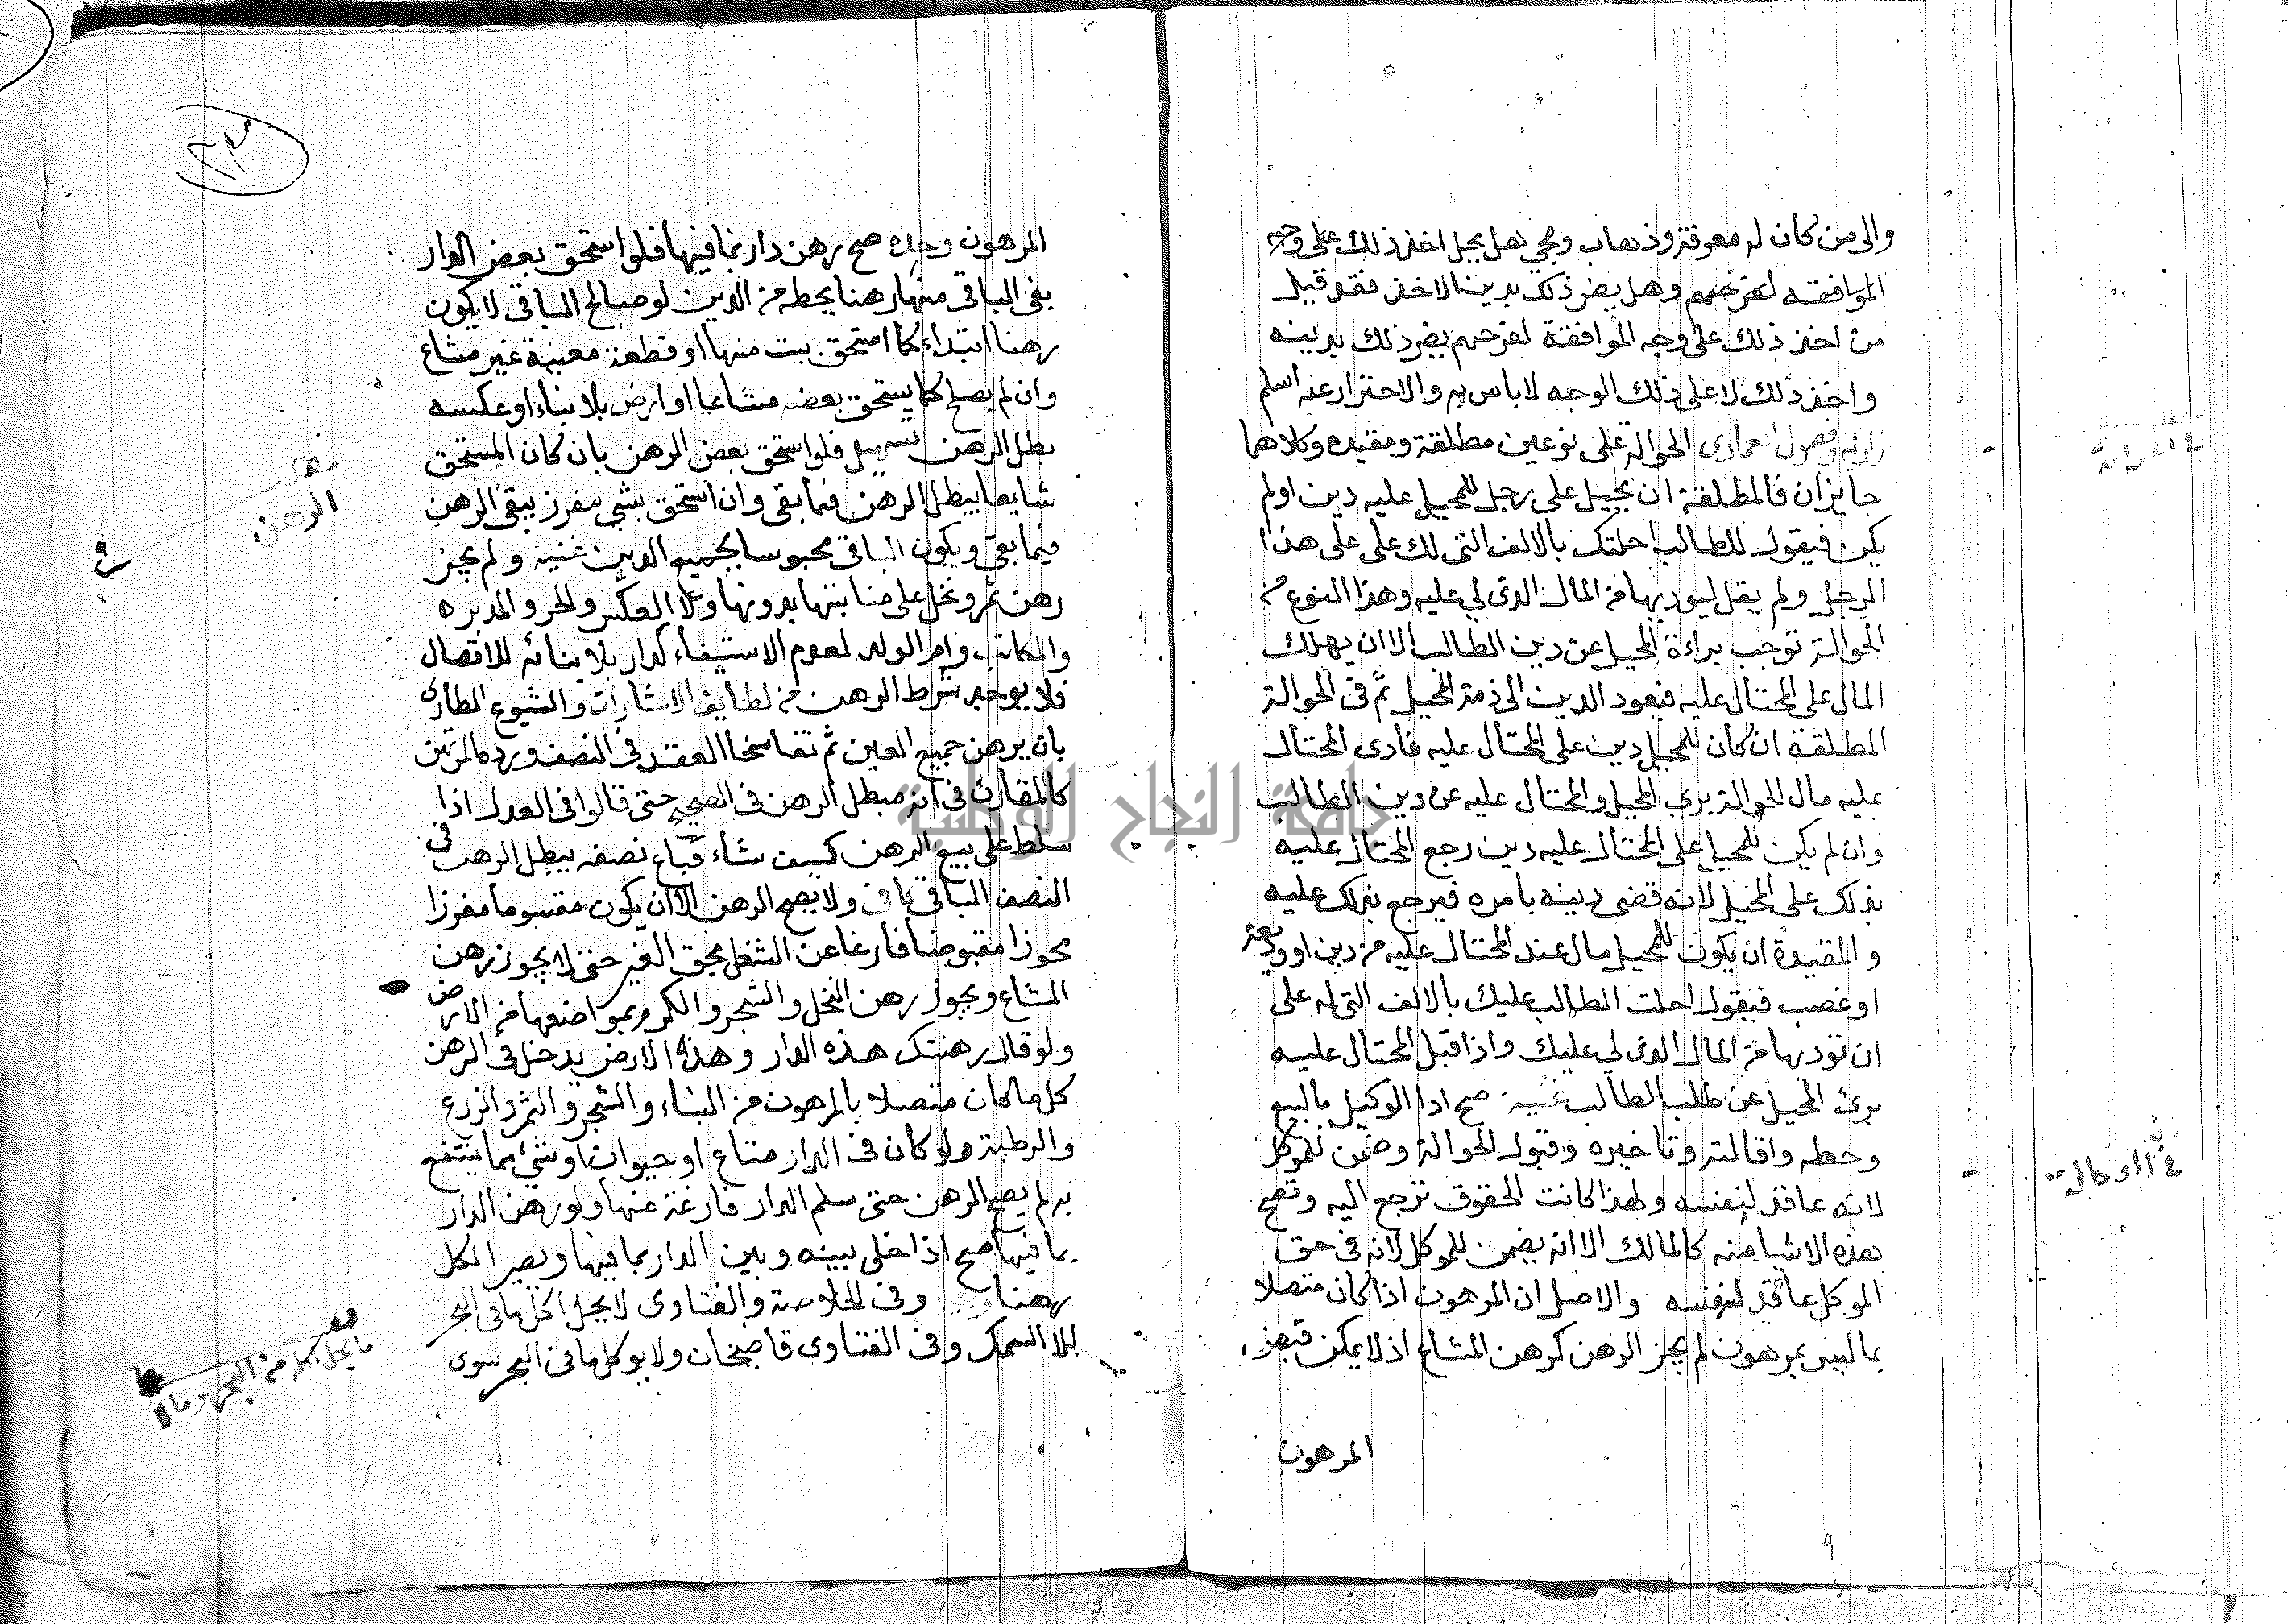 والى من كان له معوقة وذهاب ومجي هل يحل اخذ ذلك على وجه
الموافقه لغرضهم وهل يضر ذلك بدين الاخذ فقد قيل
من اخذ ذلك على وجه الموافقة لغرضهم يضر ذلك بدينه
واخذ ذلك لا على ذلك الوجه لا باس به والاحتراز عنه اسلم
فصول عمادى الحوالة على نوعين مطلقة ومقيده وكلاهما
جايزان فالمطلقة ان يحيل على رجل للمحيل عليه دين او لم
يكن فيقول للطالب احلتك بالالف التى لك على على هذا
الرجل ولم يقل ليوديها من المال الذى لي عليه وهذا النوع من
الحوالة توجب براءة المحيل عن دين الطالب الا ان يهلك
المال على المحتال عليه فيعود الدين الى ذمة المحيل ثم فى الحوالة
المطلقة ان كان للمحيل دين على المحتال عليه فادى المحتال
عليه مال الحوالة برى المحيل والمحتال عليه عن دين الطالب
وان لم يكن للمحيل على المحتال عليه دين رجع المحتال عليه
بذلك على المحيل لانه قضى دينه بامره فيرجع بذلك عليه
والمقيدة ان يكون للمحيل مال عند المحتال عليه من دين او وديعة
او غصب فيقول احلت الطالب عليك بالالف التى له على
ان توديها من المال الذى لي عليك واذا قبل المحتال عليه
برئ المحيل عن طلب الطالب غنيه صح ابرا الوكيل بالبيع
وحطه واقالته وتاخيره وقبول الحوالة وضمن للموكل
لانه عاقد لنفسه ولهذا كانت الحقوق ترجع اليه وتصح
هذه الاشيا منه كالمالك الا انه يضمن للموكل لانه فى حق
الموكل عاقد لنفسه والاصل ان المرهون اذا كان متصلا
بما ليس بمرهون لم يجز الرهن كرهن المشاع اذ لا يمكن قبض
المرهون
فى الوكالة
المرهون وحده صح رهن دار بما فيها فلو استحق بعض الدار
بقى الباقى منها رهنا بحطه من الدين لو صالح الباقى لا يكون
رهنا ابتداء كما استحق بيت منها او قطعة معينة غير مشاع
وان لم يصلح كما يستحق بعضه مشاعا او ارض بلا بناء او عكسه
بطل الرهن تسهيل فلو استحق بعض الرهن بان كان المستحق
شايعا يبطل الرهن فيما بقى وان استحق شي مفرز يبقى الرهن
فيما بقى ويكون الباقى محبوسا بجميع الدين غنيه ولم يجز
رهن ثمر ونخل على منابتها بدونها ولا العكس والحر والمدبره
والمكاتب وام الولد لعدم الاستيفاء كدار بلا بنائه للاتصال
فلا يوجد شرط الرهن من لطايف الاشارات والشيوع الطارى
بان يرهن جميع العين ثم تفاسخا العقد فى النصف ورده المرتهن
كالمقارن فى انه مبطل الرهن فى الصحيح حتى قالوا فى العدل اذا
سلط على بيع الرهن كيف شاء فباع نصفه يبطل الرهن فى
النصف الباقى ولا يصح الرهن الا ان يكون مقسوما مفرزا
محوزا مقبوضا فارغا عن الشغل بحق الغير حتى لا يجوز رهن
المشاع ويجوز رهن النخل والشجر والكروم بمواضعها من الارض
ولو قال رهنتك هذه الدار وهذه الارض يدخل فى الرهن
كل ما كان متصلا بالمرهون من البناء والشجر والثمر والزرع
والرطبة ولو كان فى الدار متاع او حيوان او شئ مما ينتفع
به لم يصح الرهن حتى سلم الدار فارغة عنها ولو رهن الدار
بما فيها صح اذا خلى بينه وبين الدار بما فيها ويصير الكل
رهنا وفى الخلاصة والفتاوى لا يحل اكل ما فى البحر
الا السمك وفى الفتاوى قاضيخان ولا يوكل ما فى البحر سوى
الرهن
ما يحل اكله من البحر وما لا
جامعة النجاح الوطنية